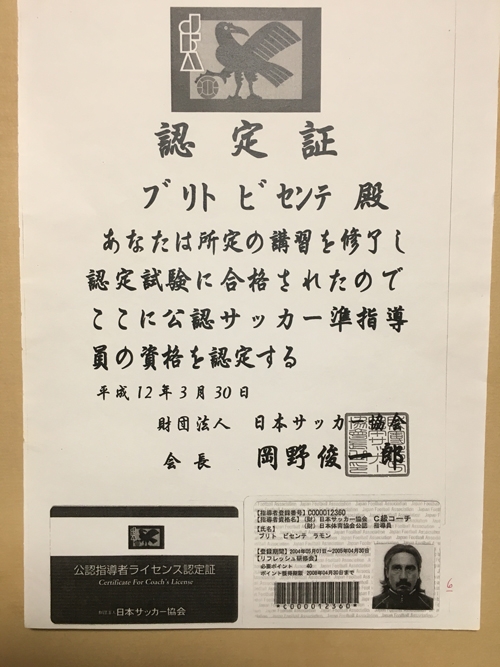 JFA
認定証
ブリト ビセンテ 殿
あなたは所定の講習を修了し
認定試験に合格されたので
ここに公認サッカー準指導
員の資格を認定する
平成12年3月30日
財団法人 日本サッカー協会
会長 岡野俊一郎
公認指導者ライセンス認定証
Certificate For Coach's License
財団法人 日本サッカー協会
【指導者登録番号】C00012360
【指導者資格名】(財)日本サッカー協会 C級コーチ
(財)日本体育協会公認 指導員
【氏名】
ブリト ビセンテ ラモン
【登録期間】2004年05月01日～2005年04月30日
【リフレッシュ研修会】
必要ポイント 40
ポイント獲得期限 2008年04月30日まで
*C00012360*
6